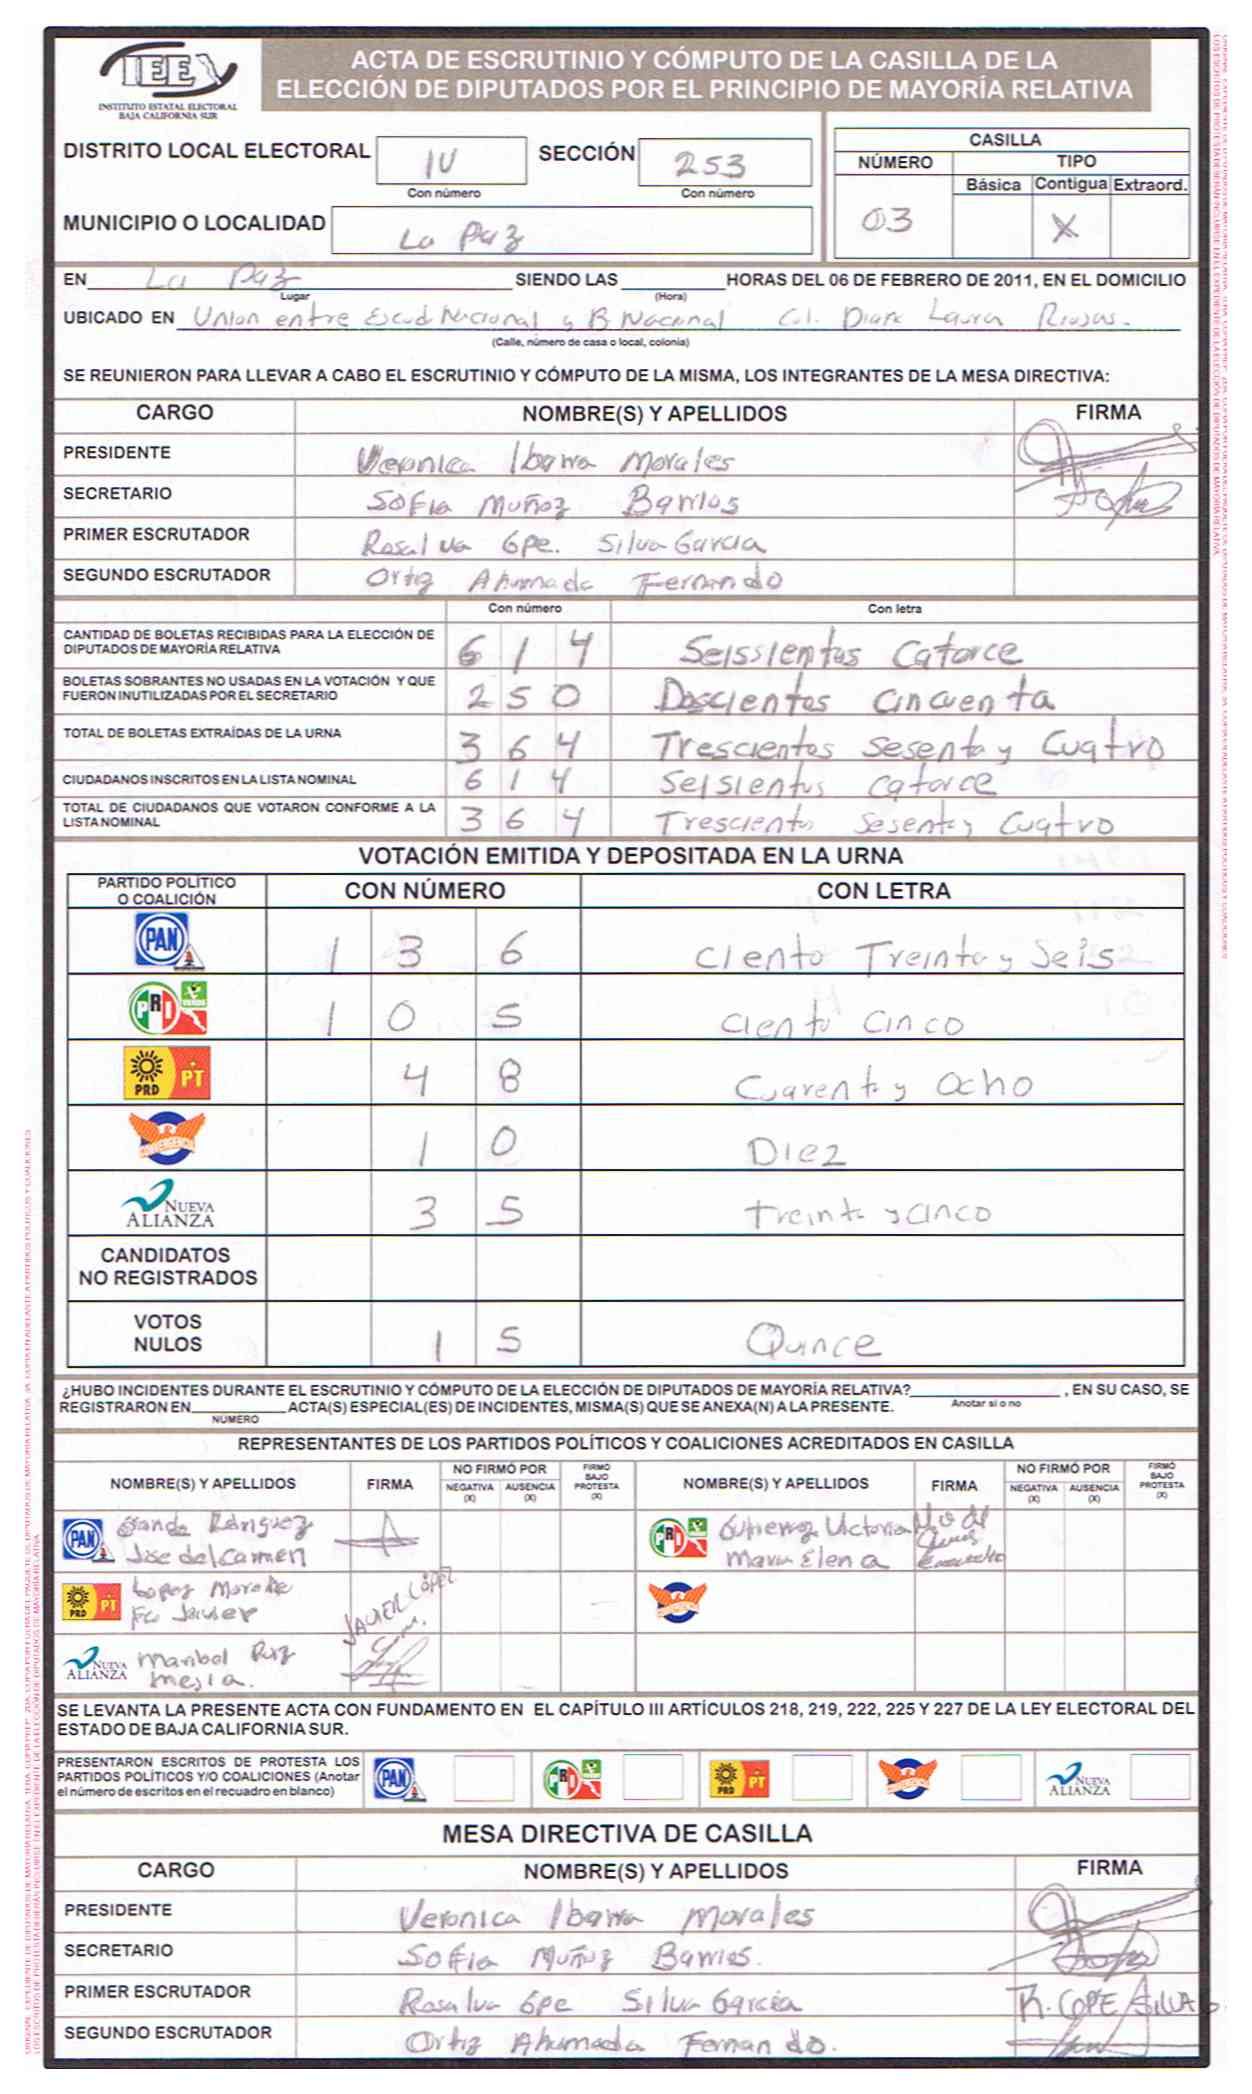 IEE
INSTITUTO ESTATAL ELECTORAL
BAJA CALIFORNIA SUR
ACTA DE ESCRUTINIO Y CÓMPUTO DE LA CASILLA DE LA
ELECCIÓN DE DIPUTADOS POR EL PRINCIPIO DE MAYORÍA RELATIVA
DISTRITO LOCAL ELECTORAL IV SECCIÓN 253
Con número Con número
MUNICIPIO O LOCALIDAD La Paz
CASILLA
NÚMERO TIPO
Básica Contigua Extraord.
03 X
EN La Paz SIENDO LAS HORAS DEL 06 DE FEBRERO DE 2011, EN EL DOMICILIO
Lugar (Hora)
UBICADO EN Union entre Escud Nacional y B Nacional Col. Diana Laura Riojas.
(Calle, número de casa o local, colonia)
SE REUNIERON PARA LLEVAR A CABO EL ESCRUTINIO Y CÓMPUTO DE LA MISMA, LOS INTEGRANTES DE LA MESA DIRECTIVA:
CARGO NOMBRE(S) Y APELLIDOS FIRMA
PRESIDENTE Veronica Ibarra Morales
SECRETARIO Sofia Muñoz Barrios
PRIMER ESCRUTADOR Rosalva Gpe. Silva Garcia
SEGUNDO ESCRUTADOR Ortiz Ahumada Fernando
Con número Con letra
CANTIDAD DE BOLETAS RECIBIDAS PARA LA ELECCIÓN DE
DIPUTADOS DE MAYORÍA RELATIVA 614 Seissientos Catorce
BOLETAS SOBRANTES NO USADAS EN LA VOTACIÓN Y QUE
FUERON INUTILIZADAS POR EL SECRETARIO 250 Doscientos Cincuenta
TOTAL DE BOLETAS EXTRAÍDAS DE LA URNA 364 Trescientos Sesenta y Cuatro
CIUDADANOS INSCRITOS EN LA LISTA NOMINAL 614 Seisientos Catorce
TOTAL DE CIUDADANOS QUE VOTARON CONFORME A LA
LISTA NOMINAL 364 Trescientos Sesenta y Cuatro
VOTACIÓN EMITIDA Y DEPOSITADA EN LA URNA
PARTIDO POLÍTICO
O COALICIÓN CON NÚMERO CON LETRA
PAN 1 3 6 Ciento Treinta y Seis
PRI VERDE 1 0 5 Ciento Cinco
PRD PT 4 8 Cuarenta y Ocho
CONVERGENCIA 1 0 Diez
NUEVA ALIANZA 3 5 treinta y cinco
CANDIDATOS
NO REGISTRADOS
VOTOS
NULOS 1 5 Quince
¿HUBO INCIDENTES DURANTE EL ESCRUTINIO Y CÓMPUTO DE LA ELECCIÓN DE DIPUTADOS DE MAYORÍA RELATIVA? , EN SU CASO, SE
Anotar si o no
REGISTRARON EN ACTA(S) ESPECIAL(ES) DE INCIDENTES, MISMA(S) QUE SE ANEXA(N) A LA PRESENTE.
NÚMERO
REPRESENTANTES DE LOS PARTIDOS POLÍTICOS Y COALICIONES ACREDITADOS EN CASILLA
NOMBRE(S) Y APELLIDOS FIRMA NO FIRMÓ POR NEGATIVA (X) AUSENCIA (X) FIRMÓ BAJO PROTESTA (X) NOMBRE(S) Y APELLIDOS FIRMA NO FIRMÓ POR NEGATIVA (X) AUSENCIA (X) FIRMÓ BAJO PROTESTA (X)
PAN
Jose del Carmen
PRI Gutierrez Victoria
Maria Elena
PRD PT Lopez
Fco Javier JAVIER LÓPEZ
NUEVA ALIANZA Maribel Ruiz
Mejia.
SE LEVANTA LA PRESENTE ACTA CON FUNDAMENTO EN EL CAPÍTULO III ARTÍCULOS 218, 219, 222, 225 Y 227 DE LA LEY ELECTORAL DEL
ESTADO DE BAJA CALIFORNIA SUR.
PRESENTARON ESCRITOS DE PROTESTA LOS
PARTIDOS POLÍTICOS Y/O COALICIONES (Anotar
el número de escritos en el recuadro en blanco)
PAN PRI PRD PT NUEVA ALIANZA
MESA DIRECTIVA DE CASILLA
CARGO NOMBRE(S) Y APELLIDOS FIRMA
PRESIDENTE Veronica Ibarra Morales
SECRETARIO Sofia Muñoz Barrios.
PRIMER ESCRUTADOR Rosalva Gpe Silva Garcia R. GPE SILVA
SEGUNDO ESCRUTADOR Ortiz Ahumada Fernando.